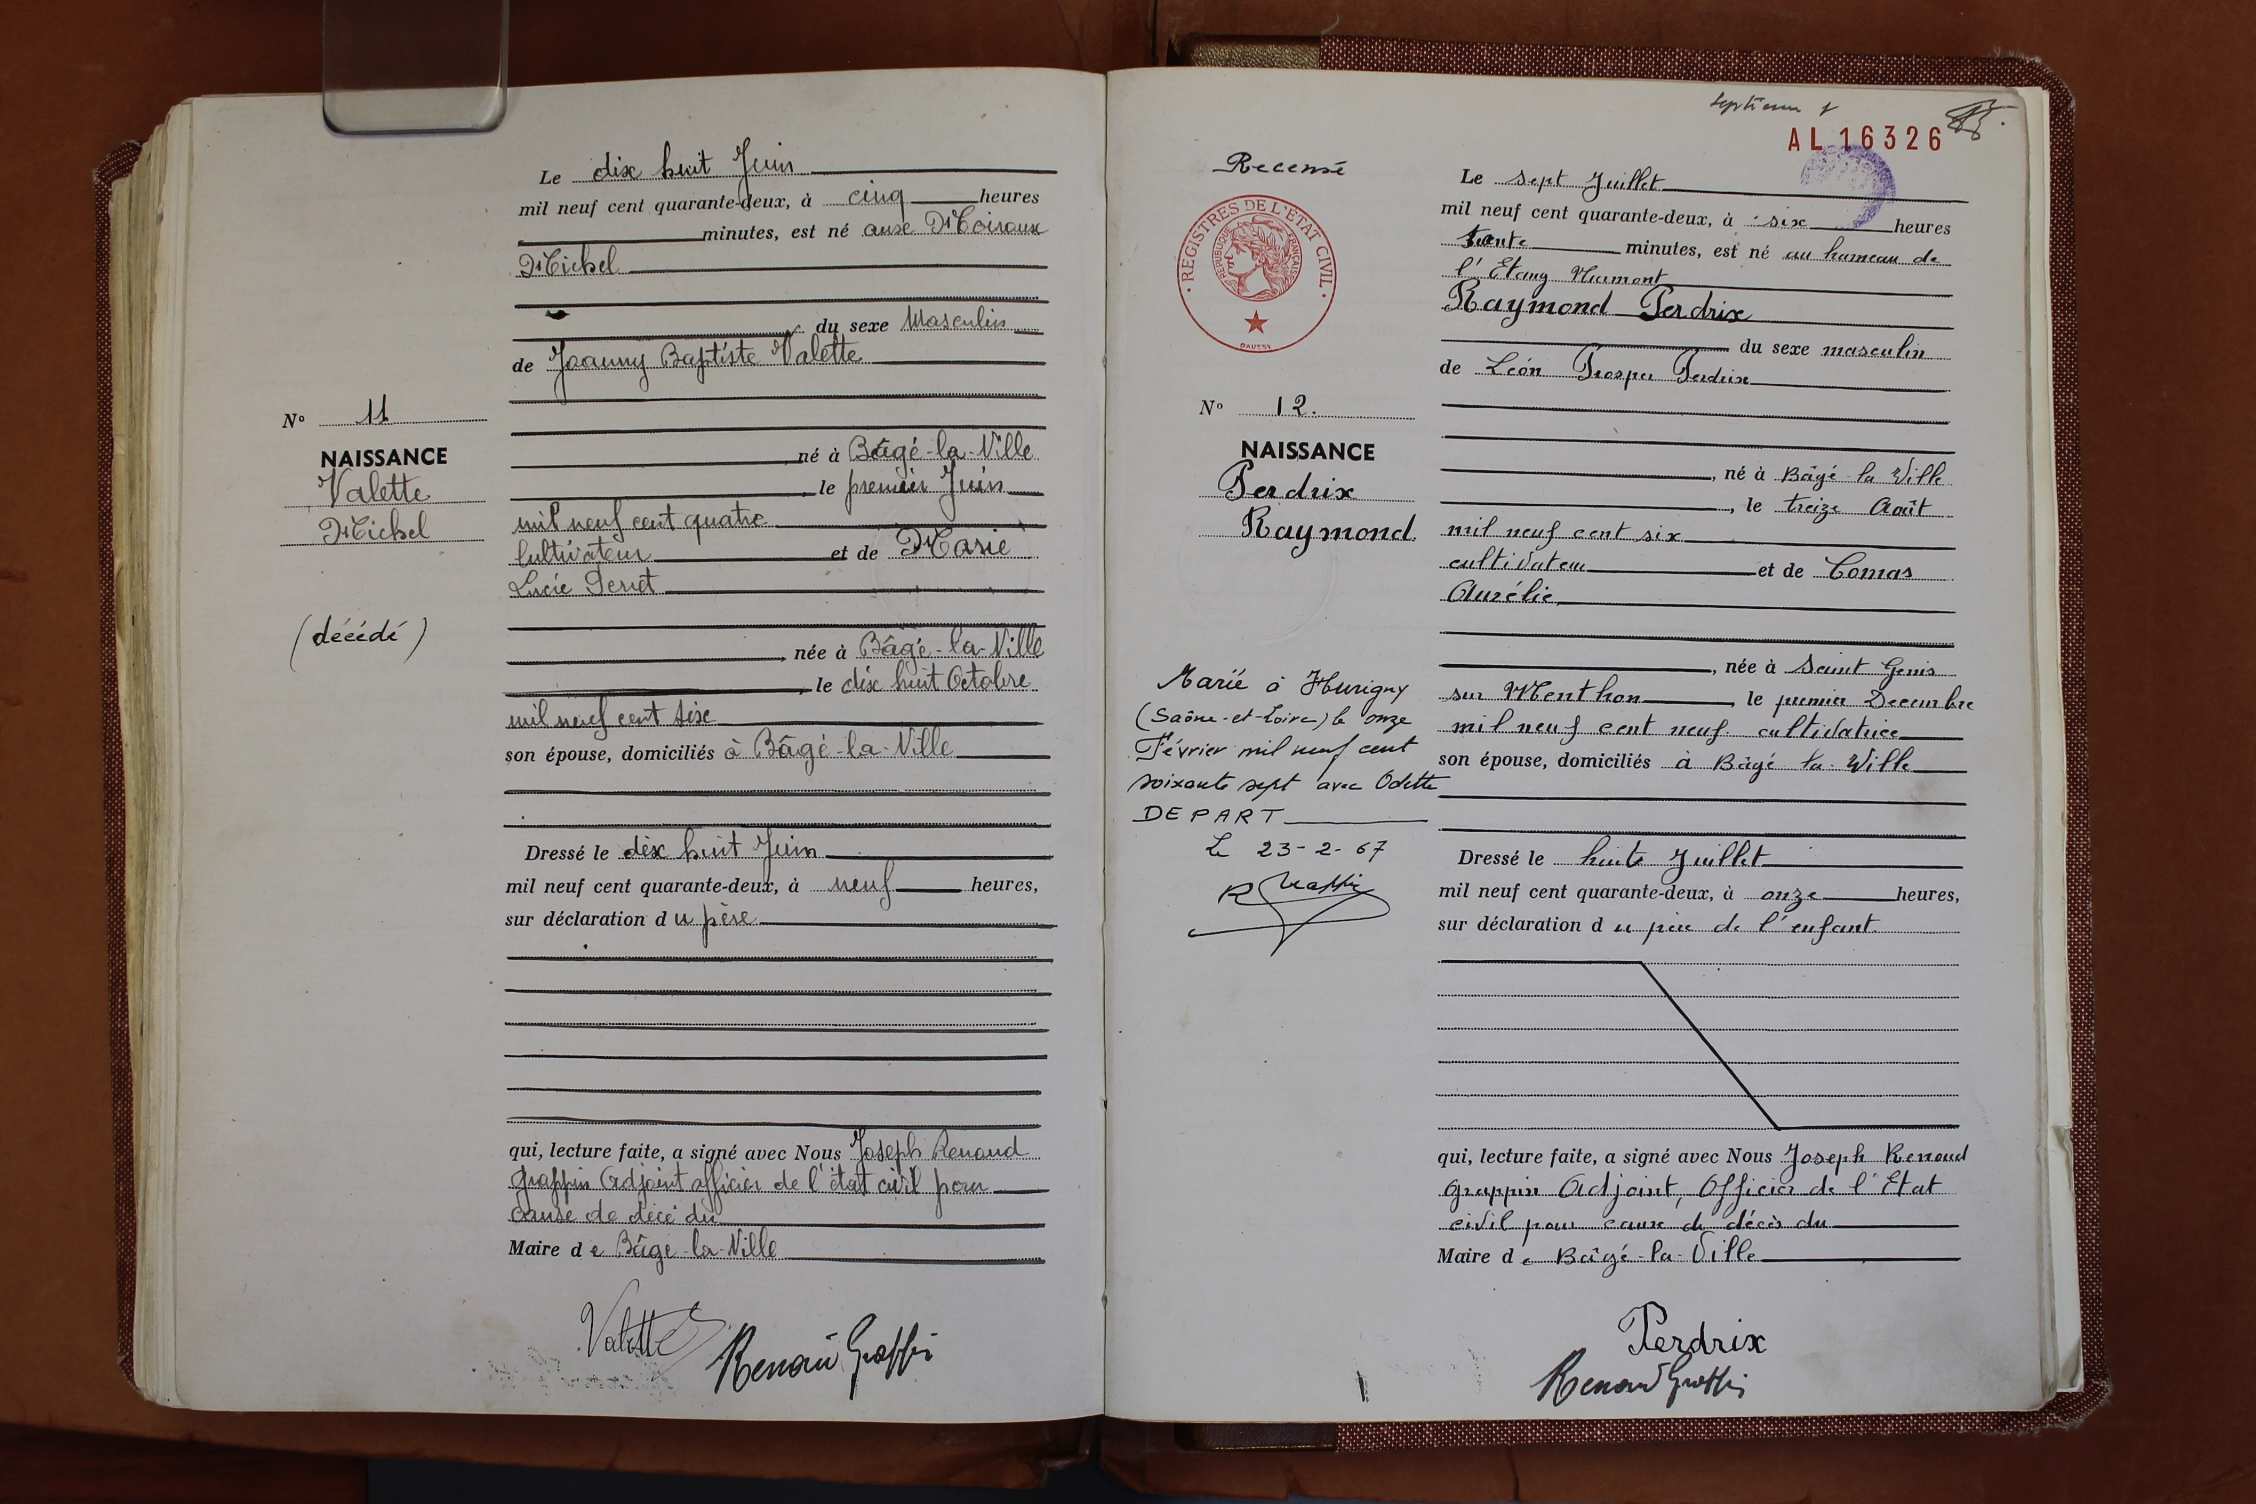 Le dix huit Juin
mil neuf cent quarante-deux, à cinq heures
minutes, est né aux Moiroux
Michel
du sexe Masculin
de Joanny Baptiste Valette
né à Bâgé-la-Ville
, le premier Juin
mil neuf cent quatre
Cultivateur et de Marie
Lucie Perret
, née à Bâgé-la-Ville
, le dix huit Octobre
mil neuf cent six
son épouse, domiciliés à Bâgé-la-Ville
Dressé le dix huit Juin
mil neuf cent quarante-deux, à neuf heures,
sur déclaration du père
qui, lecture faite, a signé avec Nous Joseph Renaud
Grappin Adjoint officier de l'état civil pour
cause de décé du
Maire de Bâgé-la-Ville
Valette
Renaud Grappin
No 11
NAISSANCE
Valette
Michel
(décédé)
septième
AL 16326
Recensé
REGISTRES DE L'ETAT CIVIL
REPUBLIQUE FRANÇAISE
DAUSSY
No 12.
NAISSANCE
Perdrix
Raymond.
Marié à Hurigny
(Saône-et-Loire) le onze
Février mil neuf cent
soixante sept avec Odette
DEPART
Le 23-2-67
R Grappin
Le sept Juillet
mil neuf cent quarante-deux, à six heures
trente minutes, est né au hameau de
l'Etang Numont
Raymond Perdrix
du sexe masculin
de Léon Prosper Perdrix
, né à Bâgé la Ville
, le treize Août
mil neuf cent six
cultivateur et de Comas
Aurélie
, née à Saint Genis
sur Menthon, le premier Décembre
mil neuf cent neuf cultivatrice
son épouse, domiciliés à Bâgé la Ville
Dressé le huit Juillet
mil neuf cent quarante-deux, à onze heures,
sur déclaration du père de l'enfant.
qui, lecture faite, a signé avec Nous Joseph Renaud
Grappin Adjoint, Officier de l'Etat
civil pour cause de décès du
Maire de Bâgé-la-Ville
Perdrix
Renaud Grappin